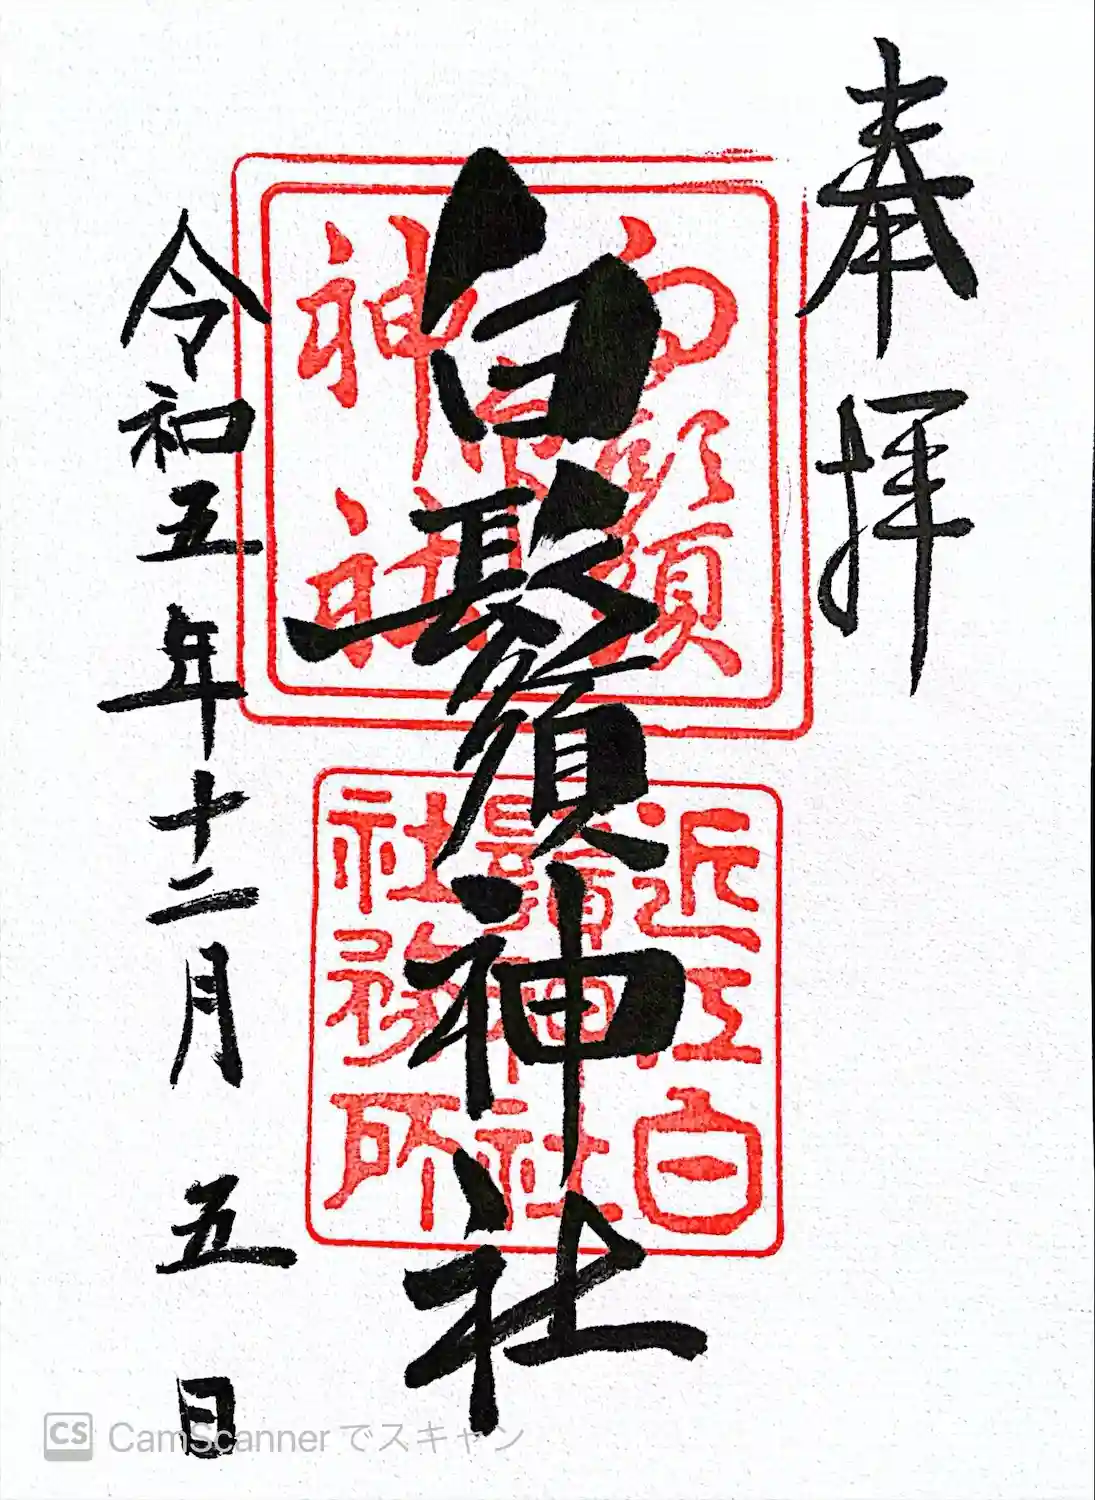 奉拝
白鬚神社
令和五年十二月五日
近江白
鬚神社
社務所
CS CamScanner でスキャン